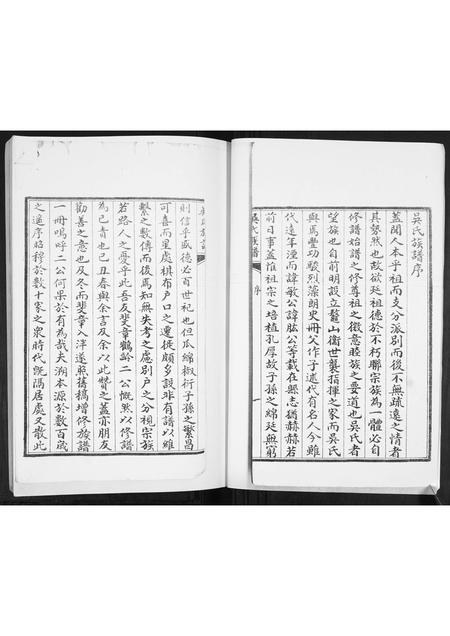 吳氏族譜序
蓋聞人本乎祖而支分派別而後不無疏遠之情者
其勢然也故欲延祖德於不朽聯宗族為一體必自
修譜始譜之修尊祖之徵意睦族之要道也吳氏者
望族也自前明設立鰲山衛世襲指揮之家而吳氏
與焉豐功駿烈藻朗史冊父作子述代有名人今雖
代遠年湮而諱敏公諱肱公等載在縣志猶赫赫若
前日事蓋惟祖宗之培植孔厚故子孫之綿廷無窮
吳氏族譜 序
則信乎盛德必百世祀也但瓜綿椒衍子孫之繁昌
可喜而里處棋布戶口之遷徙頗多設非有譜以維
繫之數傳而後為知無失考之慮別戶之分視宗族
若路人之憂乎此吾友斐章鶴齡二公慨然以修譜
為己責也己丑春與余言及余以此贊之蓋亦朋友
勸善之意也及冬而斐章入泮遂照舊稿增修族譜
一冊嗚呼二公何果於有為哉夫溯本源於數百歲
之遙序昭穆於數十家之眾時代既湮居處又散此